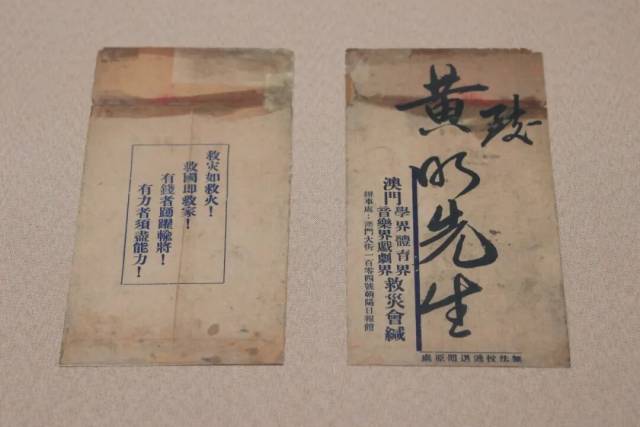 救灾如救火！
救國即救家！
有錢者踴躍輸將！
有力者須盡能力！
黄
明先生
澳門學界體育界音樂界戲劇界救災會緘
辦事處：澳門大街一百零四號朝陽日報館
無法投遞退問原處